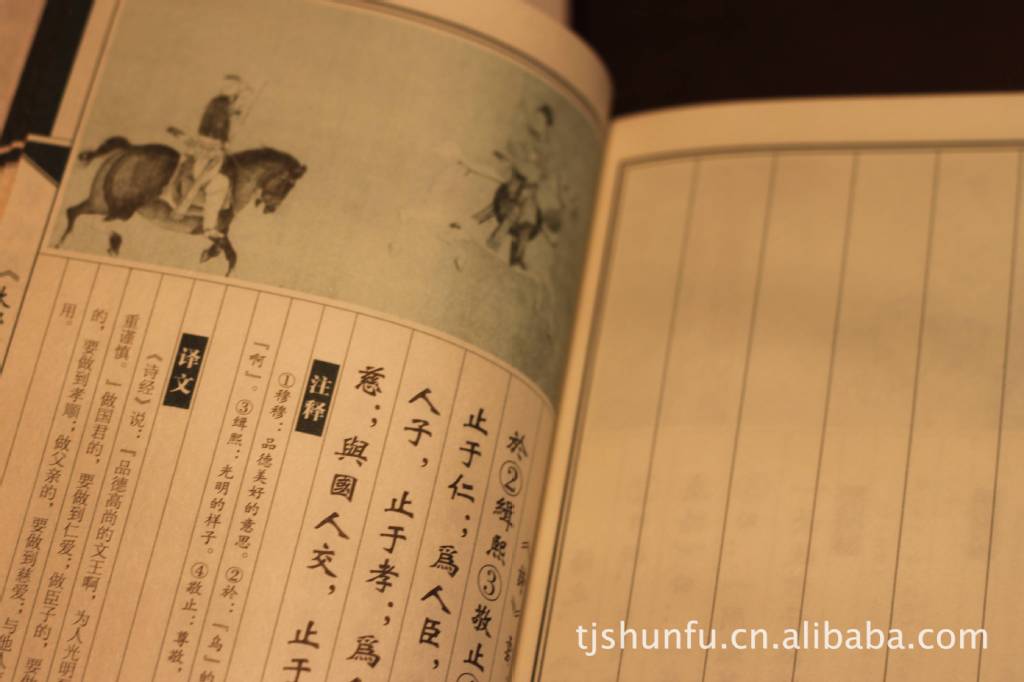 於②緝熙③敬止
止于仁；爲人臣，
人子，止于孝；爲
慈；與國人交，止于
注释
①穆穆：品德美好的意思。②於：『乌』的
『啊』。③缉熙：光明的样子。④敬止：尊敬，
译文
《诗经》说：『品德高尚的文王啊，为人光明
重谨慎。』做国君的，要做到仁爱；做臣子的，要
的，要做到孝顺；做父亲的，要做到慈爱；与他人
用。
tjshunfu.cn.alibaba.com